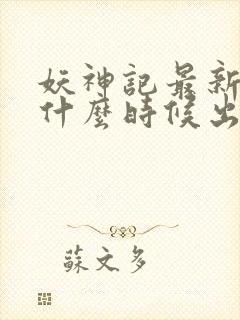 妖神記最新
什麼時候出
蘇文多